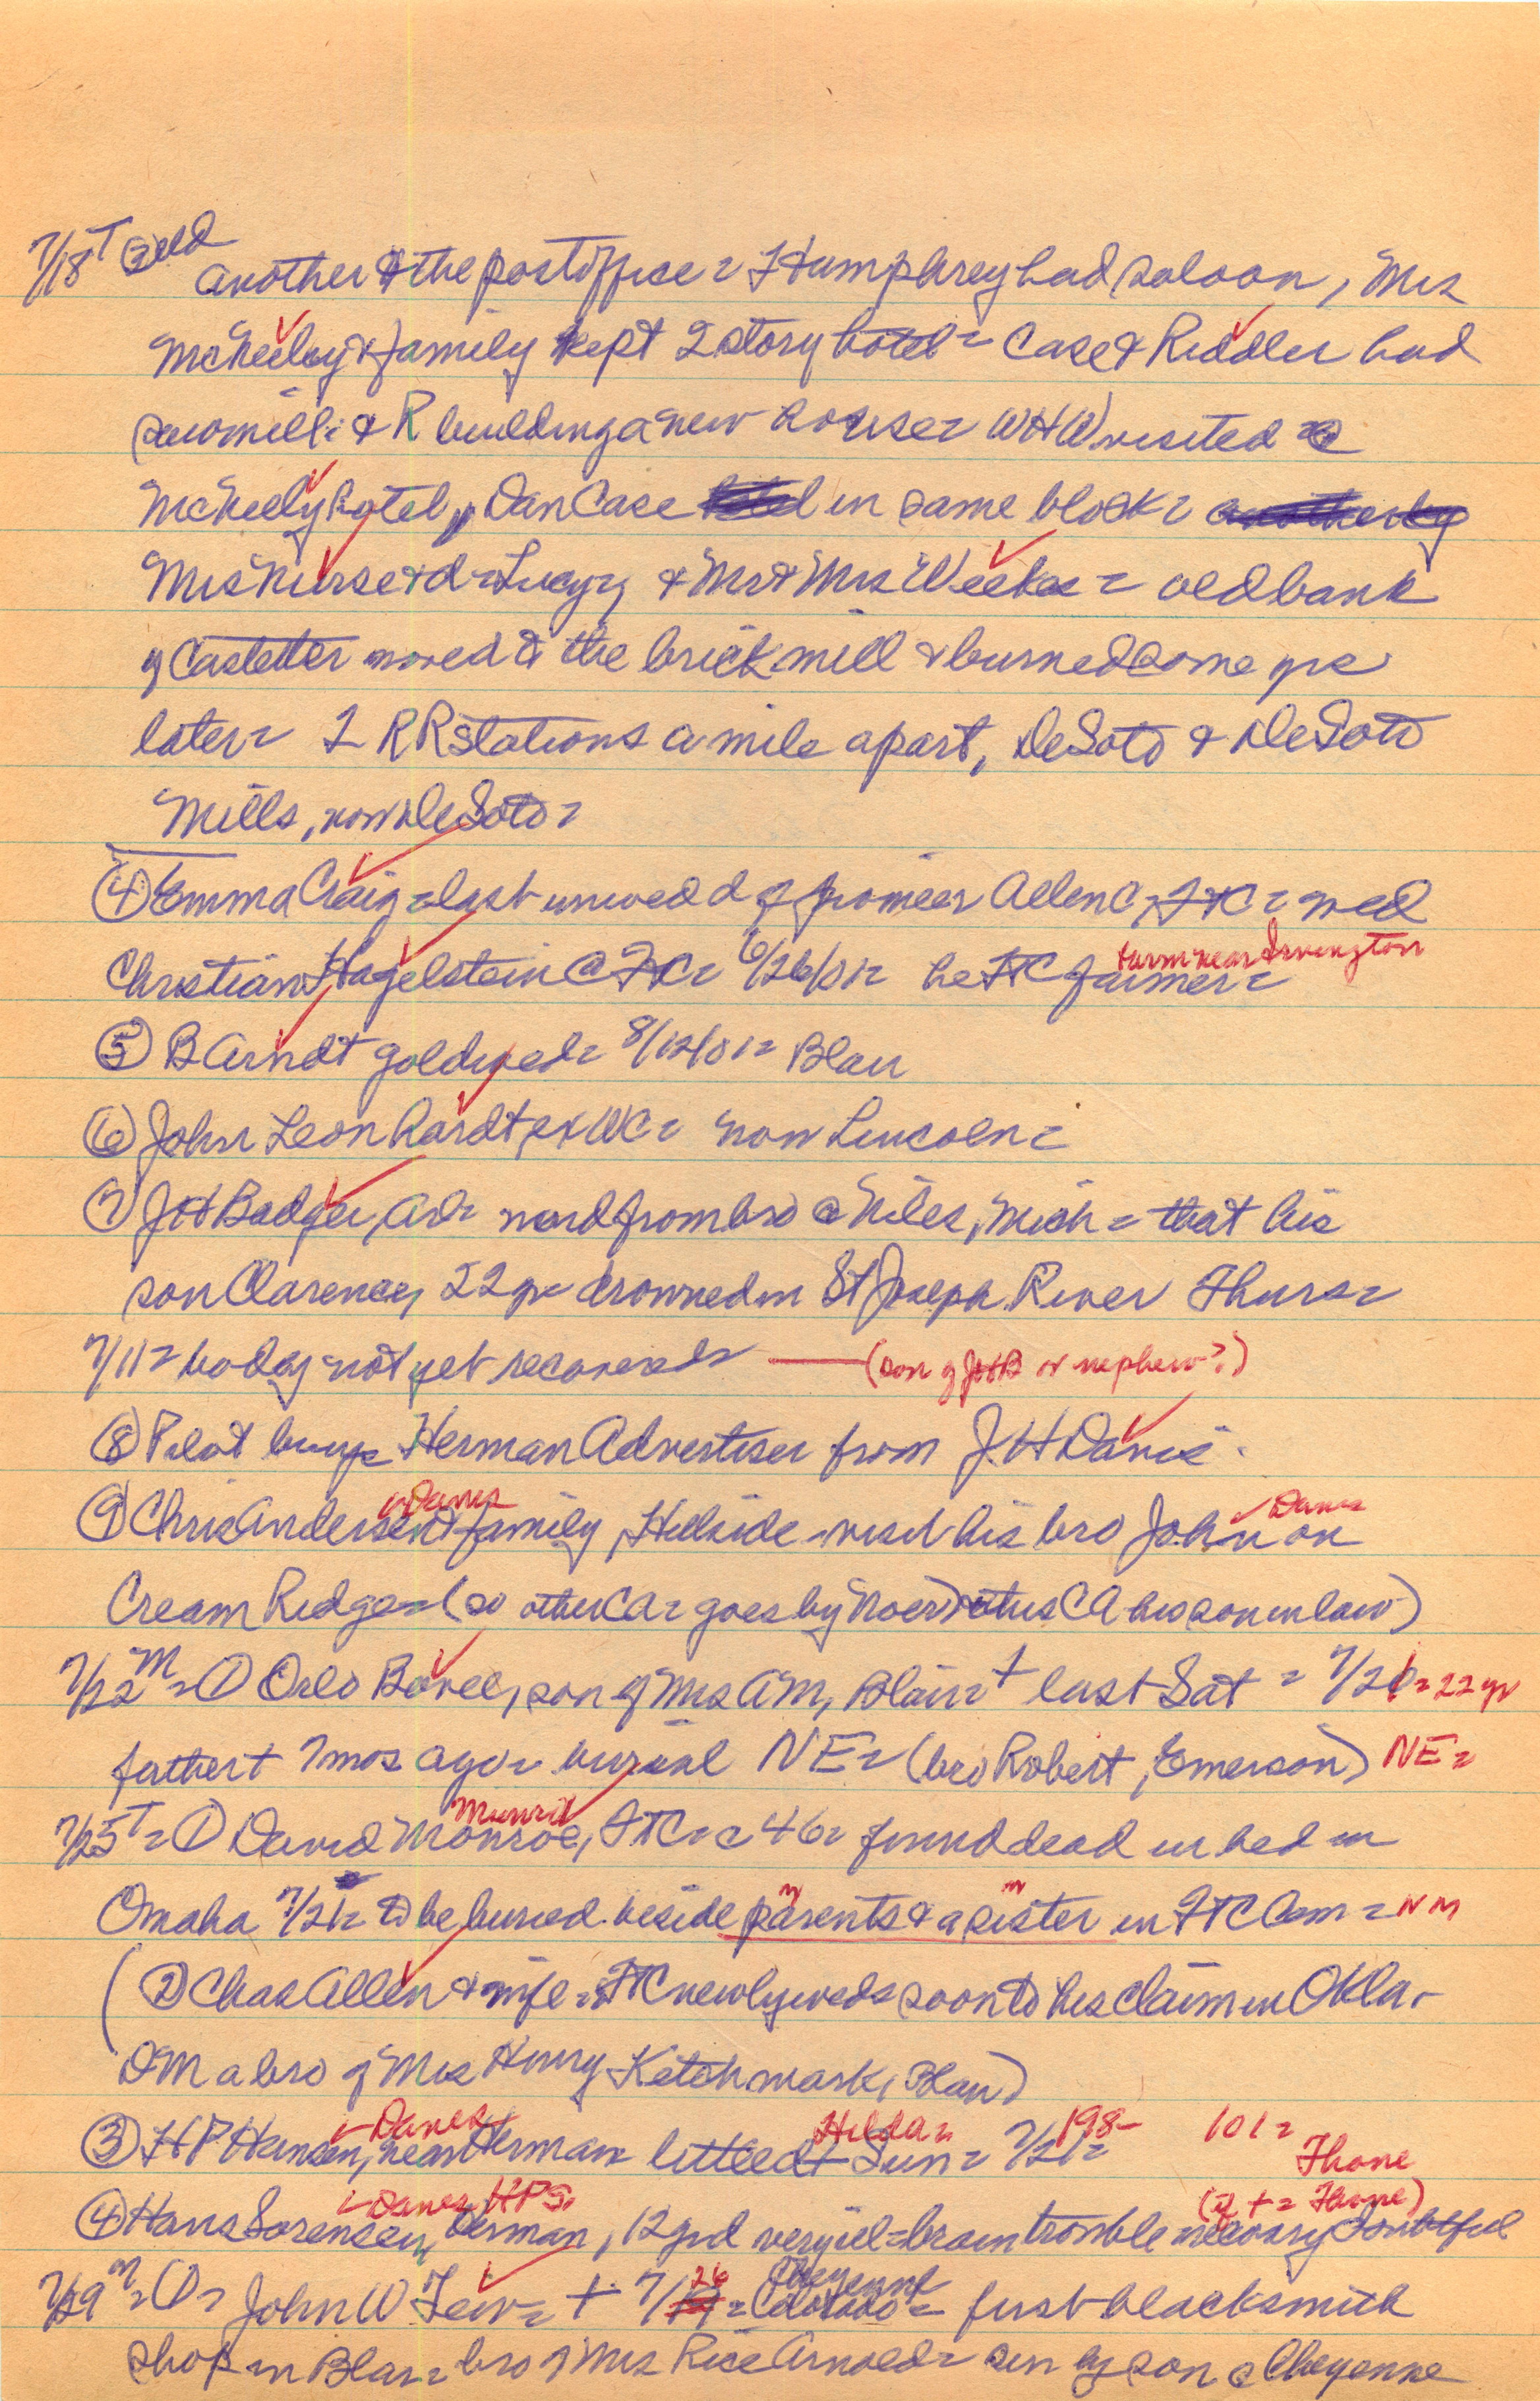 7/18 T ③ cld another @ the postoffice = F Humphrey had saloon, Mrs
McNeeley & family kept 2 story hotel = Case & Riddler had
sawmill = & R building a new house = WHW visited @
McNeely hotel, Dan Case in same block =
Mrs Nurse & d = Lucy & Mr & Mrs Weekes = old bank
of Castetter moved to the brick mill & burned some yrs
later = 2 RR stations a mile apart, DeSoto & DeSoto
Mills, now DeSoto =
④ Emma Craig = last unwed d of pioneer Allen C, FtC = wed
Christian Hagelstein @ FtC = 6/26/01 = he FtC farmer = farm near Irvington
⑤ B Arndt gold wed = 8/12/01 = Blair
⑥ John Leonhardt, ex WC = now Lincoln =
⑦ JH Badger, Arl = word from bro @ Niles, Mich = that his
son Clarence, 22 yr drowned in St Joseph River Thurs =
7/11 = body not yet recovered = (son of JHB or nephew?)
⑧ Pilot buys Herman Advertiser from J.H Davis.
⑨ Chris Andersen & family, Hillside = visit his bro John on
Danes
Danes
Cream Ridge = (so other CA = goes by Noer) & this CA his son in law)
7/22 M = ① Orlo Bovee, son of Mrs AM, Blair = + last Sat = 7/20 = 22 yr
father + 7 mos ago = burial NE = (bro Robert, Emerson) NE =
7/25 T = ① David Monroe, FtC = c 46 = found dead in bed in
Munro
Omaha 7/21 = to be buried beside parents & a sister in FtC Cem = NM
(② Chas Allen & wife = FtC newlyweds soon to his claim in Okla =
DM a bro of Mrs Henry Ketchmark, Blair)
③ HP Hansen, near Herman = little d + Sun = 7/21 =
Danes Hilda = 198- 101 = Thone
④ Hans Sorensen, Herman, 12 yr d very ill = brain trouble recovery doubtful
Danes HPS. (if + = Thone)
7/29 M = ① = John W Tew = + 7/26 = Cheyenne = first blacksmith
shop in Blair = bro of Mrs Rice Arnold = bur by son @ Cheyenne